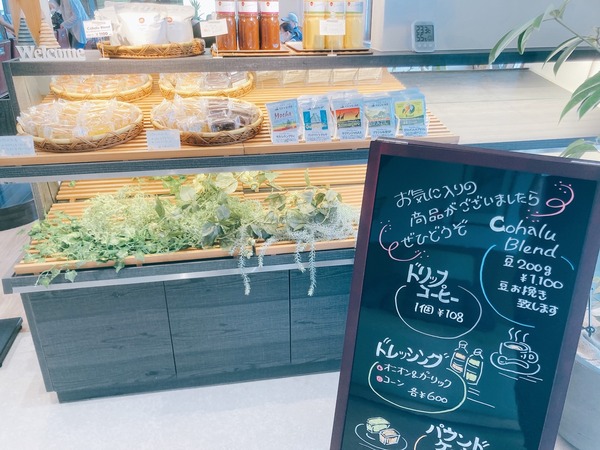 Welcome
お気に入りの
商品がございましたら
ぜひどうぞ
Cohalu
Blend
豆200g
¥1100
豆お挽き
致します
ドリップ
コーヒー
1個 ¥108
ドレッシング
オニオン&ガーリック
コーン
各¥600
パウンド
Mocha